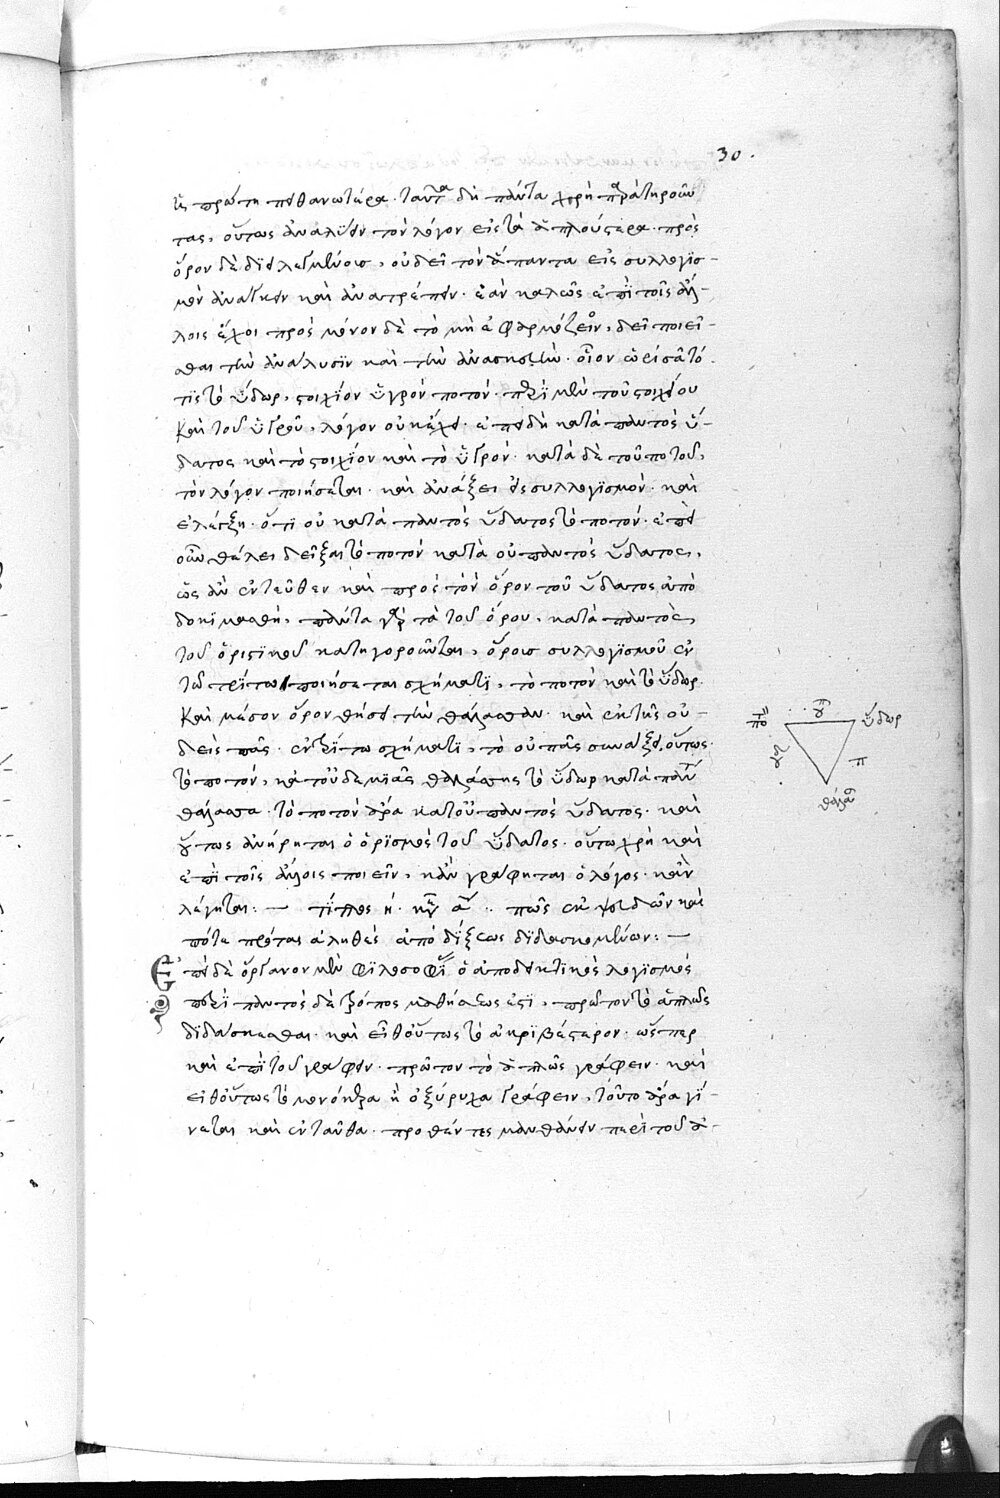 30.
ἡ πρώτη πιθανωτέρα. ταῦτα δὴ πάντα χρὴ παρατηροῦν
τας, οὕτως ἀναλύειν τὸν λόγον εἰς τὰ ἁπλούστερα. πρὸς
ὅρον δὲ διειλεγμένοις, οὐ δεῖ τὸν ἅπαντα εἰς συλλογϊσ-
μὸν ἀνάγειν καὶ ἀνατρέπειν. ἐὰν καλῶς ἐπὶ τοῖς ἄλ-
λοις ἔχοι πρὸς μόνον δὲ τὸ μὴ ἐφαρμόζειν, δεῖ ποιεῖ-
σθαι τὴν ἀνάλυσϊν καὶ τὴν ἀνασκευὴν. οἷον ὡρίσατό
τϊς τὸ ὕδωρ, στοιχεῖον ὑγρὸν ποτόν. περὶ μὲν τοῦ στοιχείου
καὶ τοῦ ὑγροῦ, λόγον οὐκ ἔχει. ἐπειδὴ κατὰ παντὸς ὕ-
δατος καὶ τὸ στοιχεῖον καὶ τὸ ὑγρόν. κατὰ δὲ τοῦ ποτοῦ,
τὸν λόγον ποιήσεται. καὶ ἀνάξει εἰς συλλογϊσμόν. καὶ
ἐλέγξη. ὅτϊ οὐ κατὰ παντὸς ὕδατος τὸ ποτόν. ἐπεὶ
οὖν θέλει δεῖξαι τὸ ποτὸν κατὰ οὐ παντὸς ὕδατος,
ὡς ἂν ἐντεῦθεν καὶ πρὸς τὸν ὅρον τοῦ ὕδατος ἀπο
δοκϊμασθῆ, πάντα γὰρ τὰ τοῦ ὅρου, κατὰ παντὸς,
τοῦ ὁριστϊκοῦ κατηγοροῦνται, ὅροις συλλογϊσμοῦ ἐν
τῶ τρίτω ποιήσεται σχήματϊ, τὸ ποτὸν καὶ τὸ ὕδωρ.
Καὶ μέσον ὅρον θήσει τὴν θάλασσαν. καὶ ἐκ τῆς οὐ-
δεὶς πᾶς. ἐν τρίτω σχήματϊ, τὸ οὐ πᾶς συνάξει, οὕτως.
τὸ ποτόν, κατ' οὐδεμϊᾶς θαλάσσης τὸ ὕδωρ κατὰ πάσης
θάλασσα. τὸ ποτὸν ἄρα κατ' οὐ παντὸς ὕδατος. καὶ
οὕτως ἀνήρηται ὁ ὁρϊσμὸς τοῦ ὕδατος. οὕτω χρὴ καὶ
ἐπὶ τοῖς ἄλλοις ποιεῖν, κἂν γράφηται ὁ λόγος. κἂν
λέγηται:—
πότε πρότασις ἀληθὲς ἀπὸ δείξεως δϊδασκομένων:—
Ἐπεὶ δὲ ὄργανον μὲν φϊλοσοφίας ὁ ἀποδεικτϊκὸς λογϊσμὸς
περὶ παντὸς δὲ τρόπος μαθήσεώς ἐστϊ, πρῶτον τὸ ἁπλῶς
δϊδάσκεσθαι. καὶ εἶθ' οὕτως τὸ ἀκριβέστερον. ὥσπερ
καὶ ἐπὶ τοῦ γράφειν. πρῶτον τὸ ἁπλῶς γράφειν. καὶ
εἶθ' οὕτως τὸ μονόκερα ἢ ὀξύρυχα γράφειν, τοῦτο ἄρα γί-
νεται καὶ ἐνταῦθα. προθέντες μανθάνειν περὶ τοῦ ἀ-
ὕδωρ
π